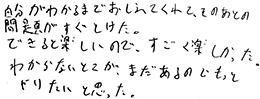 自分がわかるまでおしえてくれて、そのあとの
問題がすぐとけた。
できると楽しいので、すごく楽しかった。
わからないとこが、まだあるのでもっと
やりたいと思った。